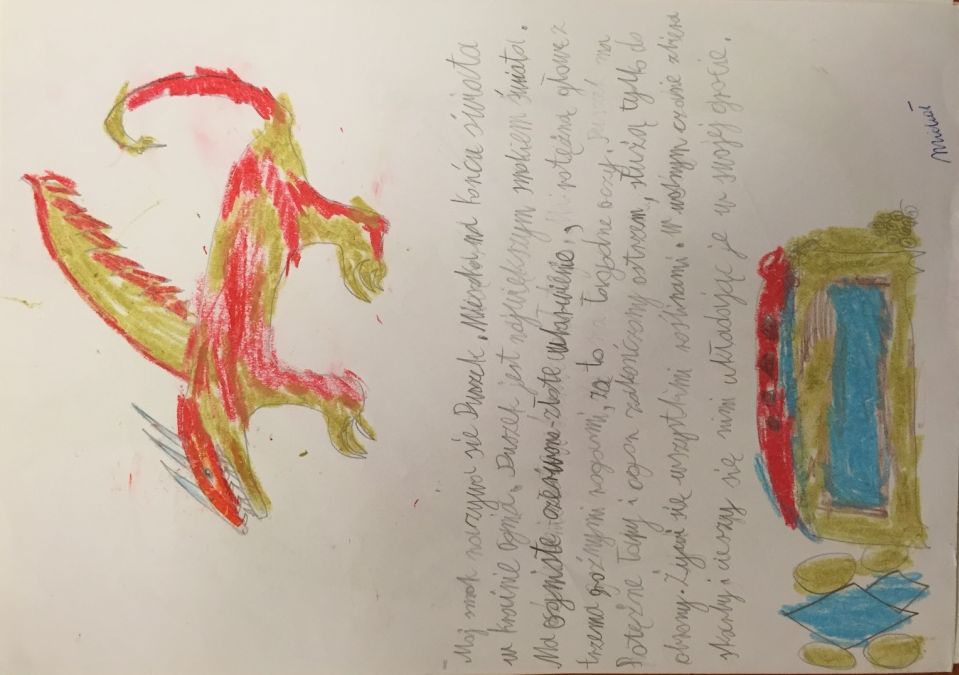 Mój smok nazywa się Duszek. Mieszka na końcu świata
w krainie ognia. Duszek jest największym smokiem świata.
Ma ogniste czerwono-złote ubarwienie, potężną głowę z
trzema groźnymi rogami, za to łagodne oczy.
Potężne łapy i ogon zakończony ostrzem, służą tylko do
obrony. Żywi się wszystkimi roślinami. W wolnym czasie zbiera
skarby i cieszy się nimi układając je w swojej grocie.